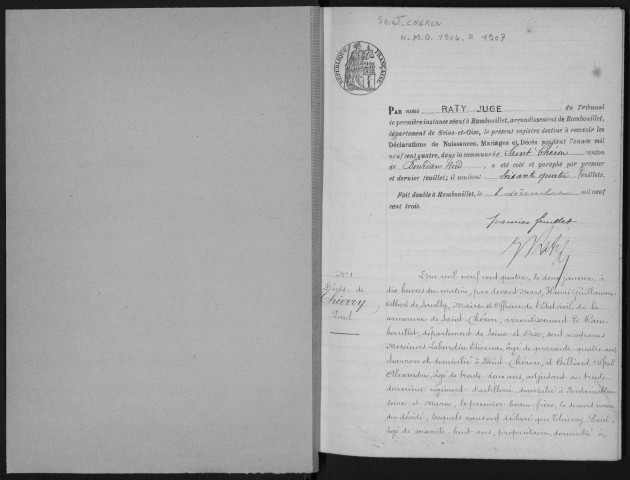 SAINT-CHERON
N.M.D. 1904 à 1907
RÉPUBLIQUE FRANÇAISE
PAR nous RATY JUGE du Tribunal
de première instance séant à Rambouillet, arrondissement de Rambouillet,
département de Seine-et-Oise, le présent registre destiné à recevoir les
Déclarations de Naissances, Mariages et Décès pendant l'année mil
neuf cent quatre, dans la commune de Saint Chéron canton
de Dourdan Nord, a été coté et paraphé par premier
et dernier feuillet; il contient soixante quatre feuillets.
Fait double à Rambouillet, le 8 décembre mil neuf
cent trois.
premier feuillet
N° 1
Décès de
Thierry
Paul
L'an mil neuf cent quatre, le deux janvier, à
dix heures du matin, par devant Nous, Henri Guillaume
Albert de Saulty, Maire et Officier de l'Etat civil de la
commune de Saint-Chéron, arrondissement de Ram-
bouillet, département de Seine et Oise, sont comparus
Messieurs Labardin Etienne, âgé de quarante quatre ans
charron et domicilié à Saint-Chéron, et Billiard Alfred
Alexandre, âgé de trente deux ans, adjudant au trente
deuxième régiment d'artillerie, domicilié à Fontainebleau
Seine et Marne, le premier beau-frère, le second neveu
du décédé, lesquels nous ont déclaré que Thierry Paul
âgé de soixante huit ans, propriétaire, domicilié à